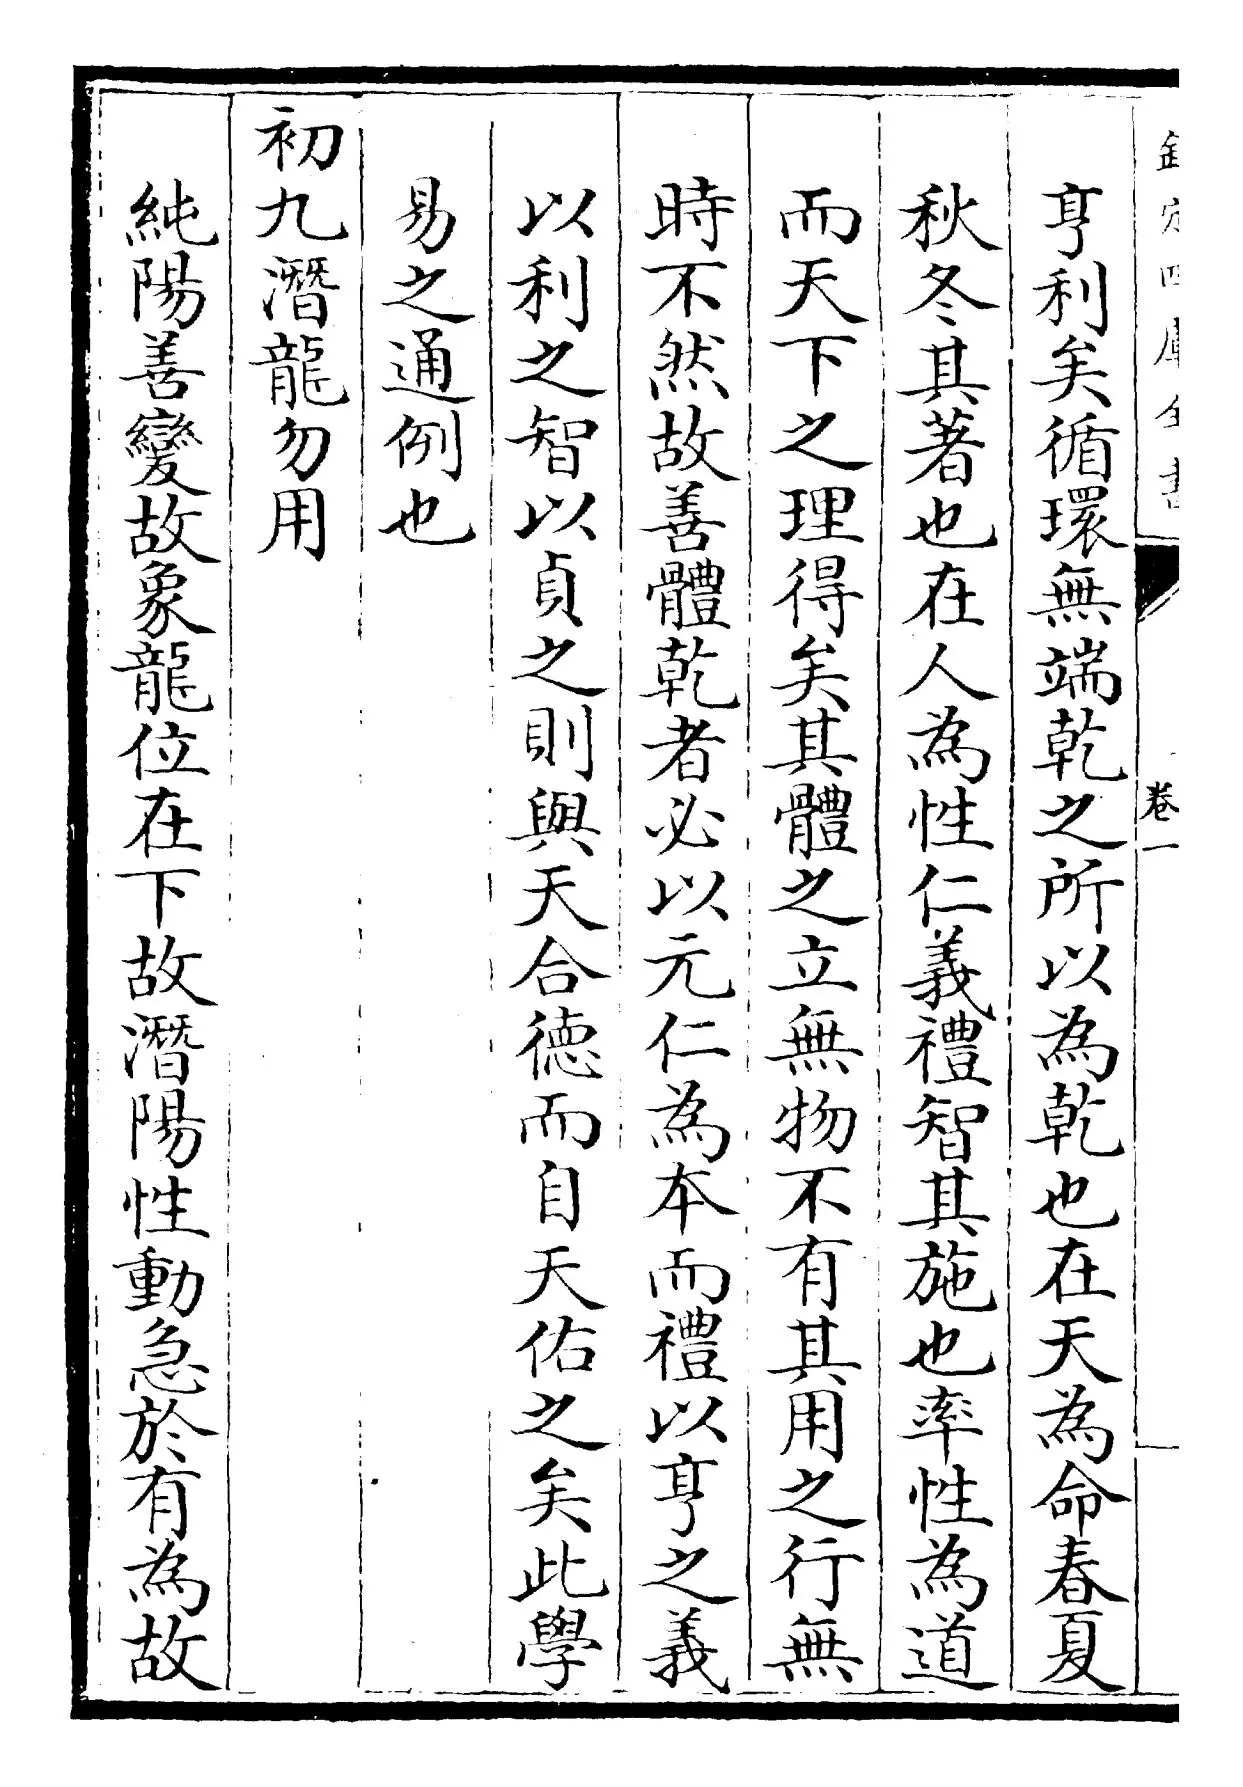 欽定四庫全書
卷一
亨利矣循環無端乾之所以為乾也在天為命春夏
秋冬其著也在人為性仁義禮智其施也率性為道
而天下之理得矣其體之立無物不有其用之行無
時不然故善體乾者必以元仁為本而禮以亨之義
以利之智以貞之則與天合德而自天佑之矣此學
易之通例也
初九潛龍勿用
純陽善變故象龍位在下故潛陽性動急於有為故